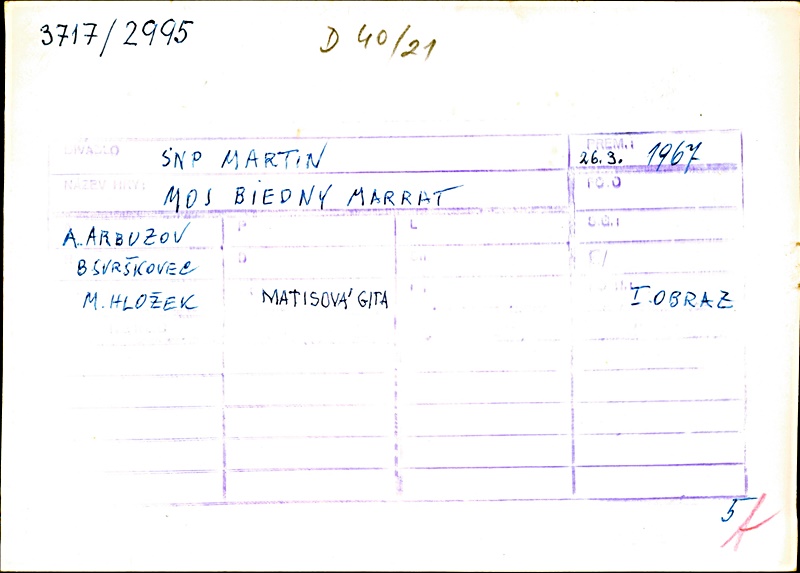 3717/2995
D 40/21
DIVADLO ŠNP MARTIN PREM.: 26.3. 1967
NÁZEV HRY: MOJ BIEDNY MARRAT
A. ARBUZOV P L
B SVRŠKOVEC D
M. HLOŽEK MATISOVÁ GITA I. OBRAZ
5